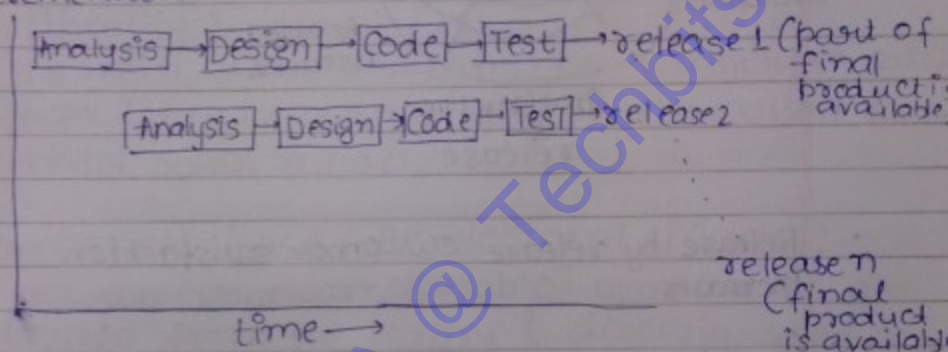 Analysis → Design → Code → Test → release 1 (part of
final
product i
available
Analysis → Design → Code → TesT → release 2
release n
(final
product
is availabl
time →
@ Techbits